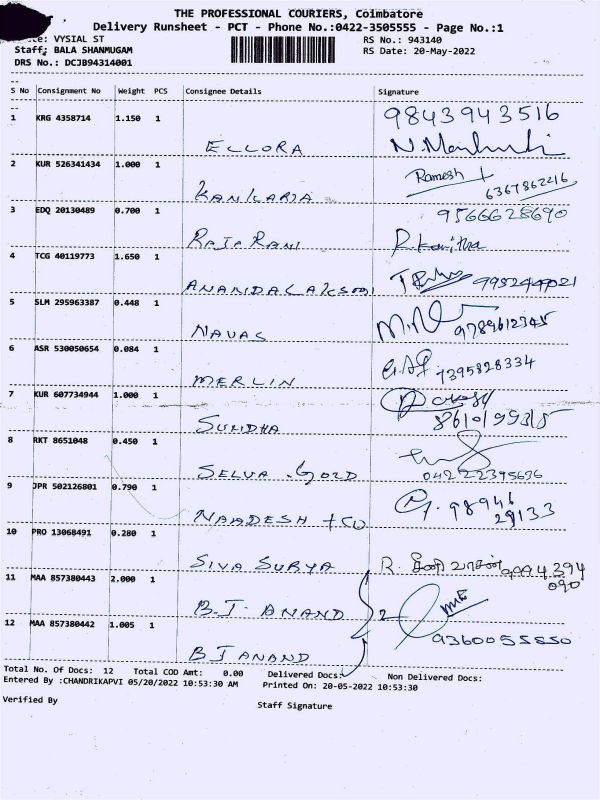 THE PROFESSIONAL COURIERS, Coimbatore
Delivery Runsheet - PCT - Phone No.:0422-3505555 - Page No.:1
te: VYSIAL ST RS No.: 943140
Staff: BALA SHANMUGAM RS Date: 20-May-2022
DRS No.: DCJB94314001
S No Consignment No Weight PCS Consignee Details Signature
1 KRG 4358714 1.150 1 9843943516
ELLORA
2 KUR 526341434 1.000 1 Ramesh
KANKARIA 6367862216
3 EDQ 20130489 0.700 1 9566628690
RAJA RANI R. Kavitha
4 TCG 40119773 1.650 1
ANANDALAKSMI
5 SLM 295963387 0.448 1
NAVAS 9789612345
6 ASR 530050654 0.084 1
MERLIN 7395828334
7 KUR 607734944 1.000 1
SUNIDHA
8 RKT 8651048 0.450 1
SELVA GOLD 04222395696
9 JPR 502126801 0.790 1 98946
NAADESH + CO 29133
10 PRO 13068491 0.280 1
SIVA SURYA R. சீனிவாசன் 9994394
090
11 MAA 857380443 2.000 1
B.J. ANAND 2
12 MAA 857380442 1.005 1 9360055850
BJ ANAND
Total No. Of Docs: 12 Total COD Amt: 0.00 Delivered Docs: Non Delivered Docs:
Entered By :CHANDRIKAPVI 05/20/2022 10:53:30 AM Printed On: 20-05-2022 10:53:30
Verified By Staff Signature